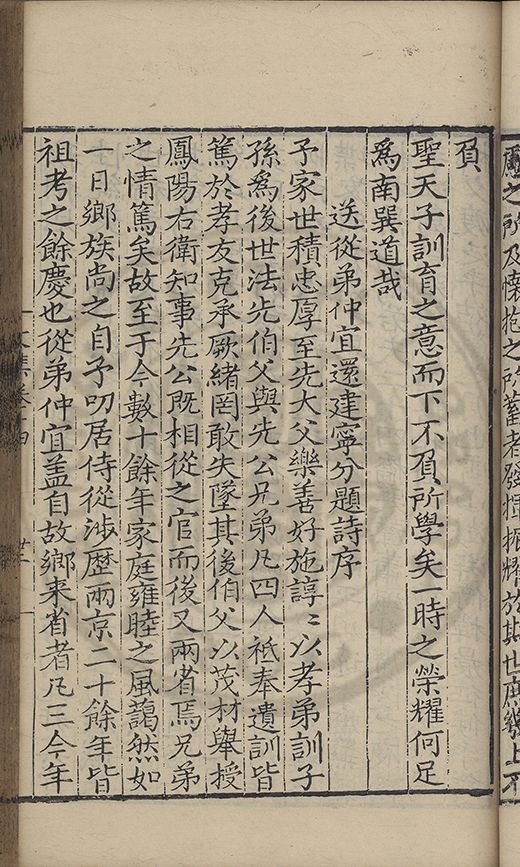 負
聖天子訓育之意而下不負所學矣一時之榮耀何足
爲南巽道哉
送從弟仲宜還建寧分題詩序
予家世積忠厚至先大父樂善好施諄〻以孝弟訓子
孫爲後世法先伯父與先公兄弟凡四人祗奉遺訓皆
篤於孝友克承厥緒罔敢失墜其後伯父以茂材舉授
鳳陽右衛知事先公既相從之官而後又兩省焉兄弟
之情篤矣故至于今數十餘年家庭雍睦之風藹然如
一日鄉族尚之自予叨居侍從涉歷兩京二十餘年皆
祖考之餘慶也從弟仲宜盖自故鄉来省者凡三今年